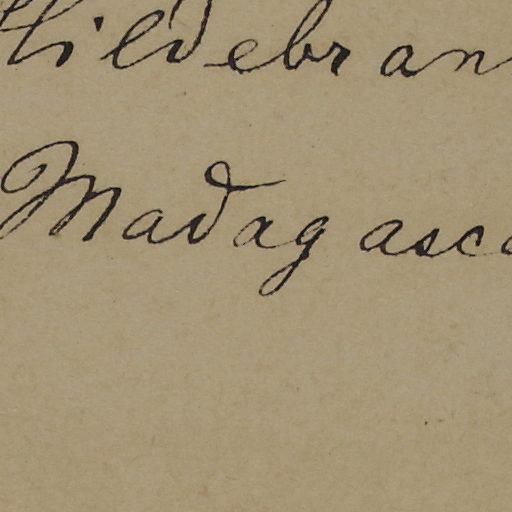 Hildebran
Madagasca